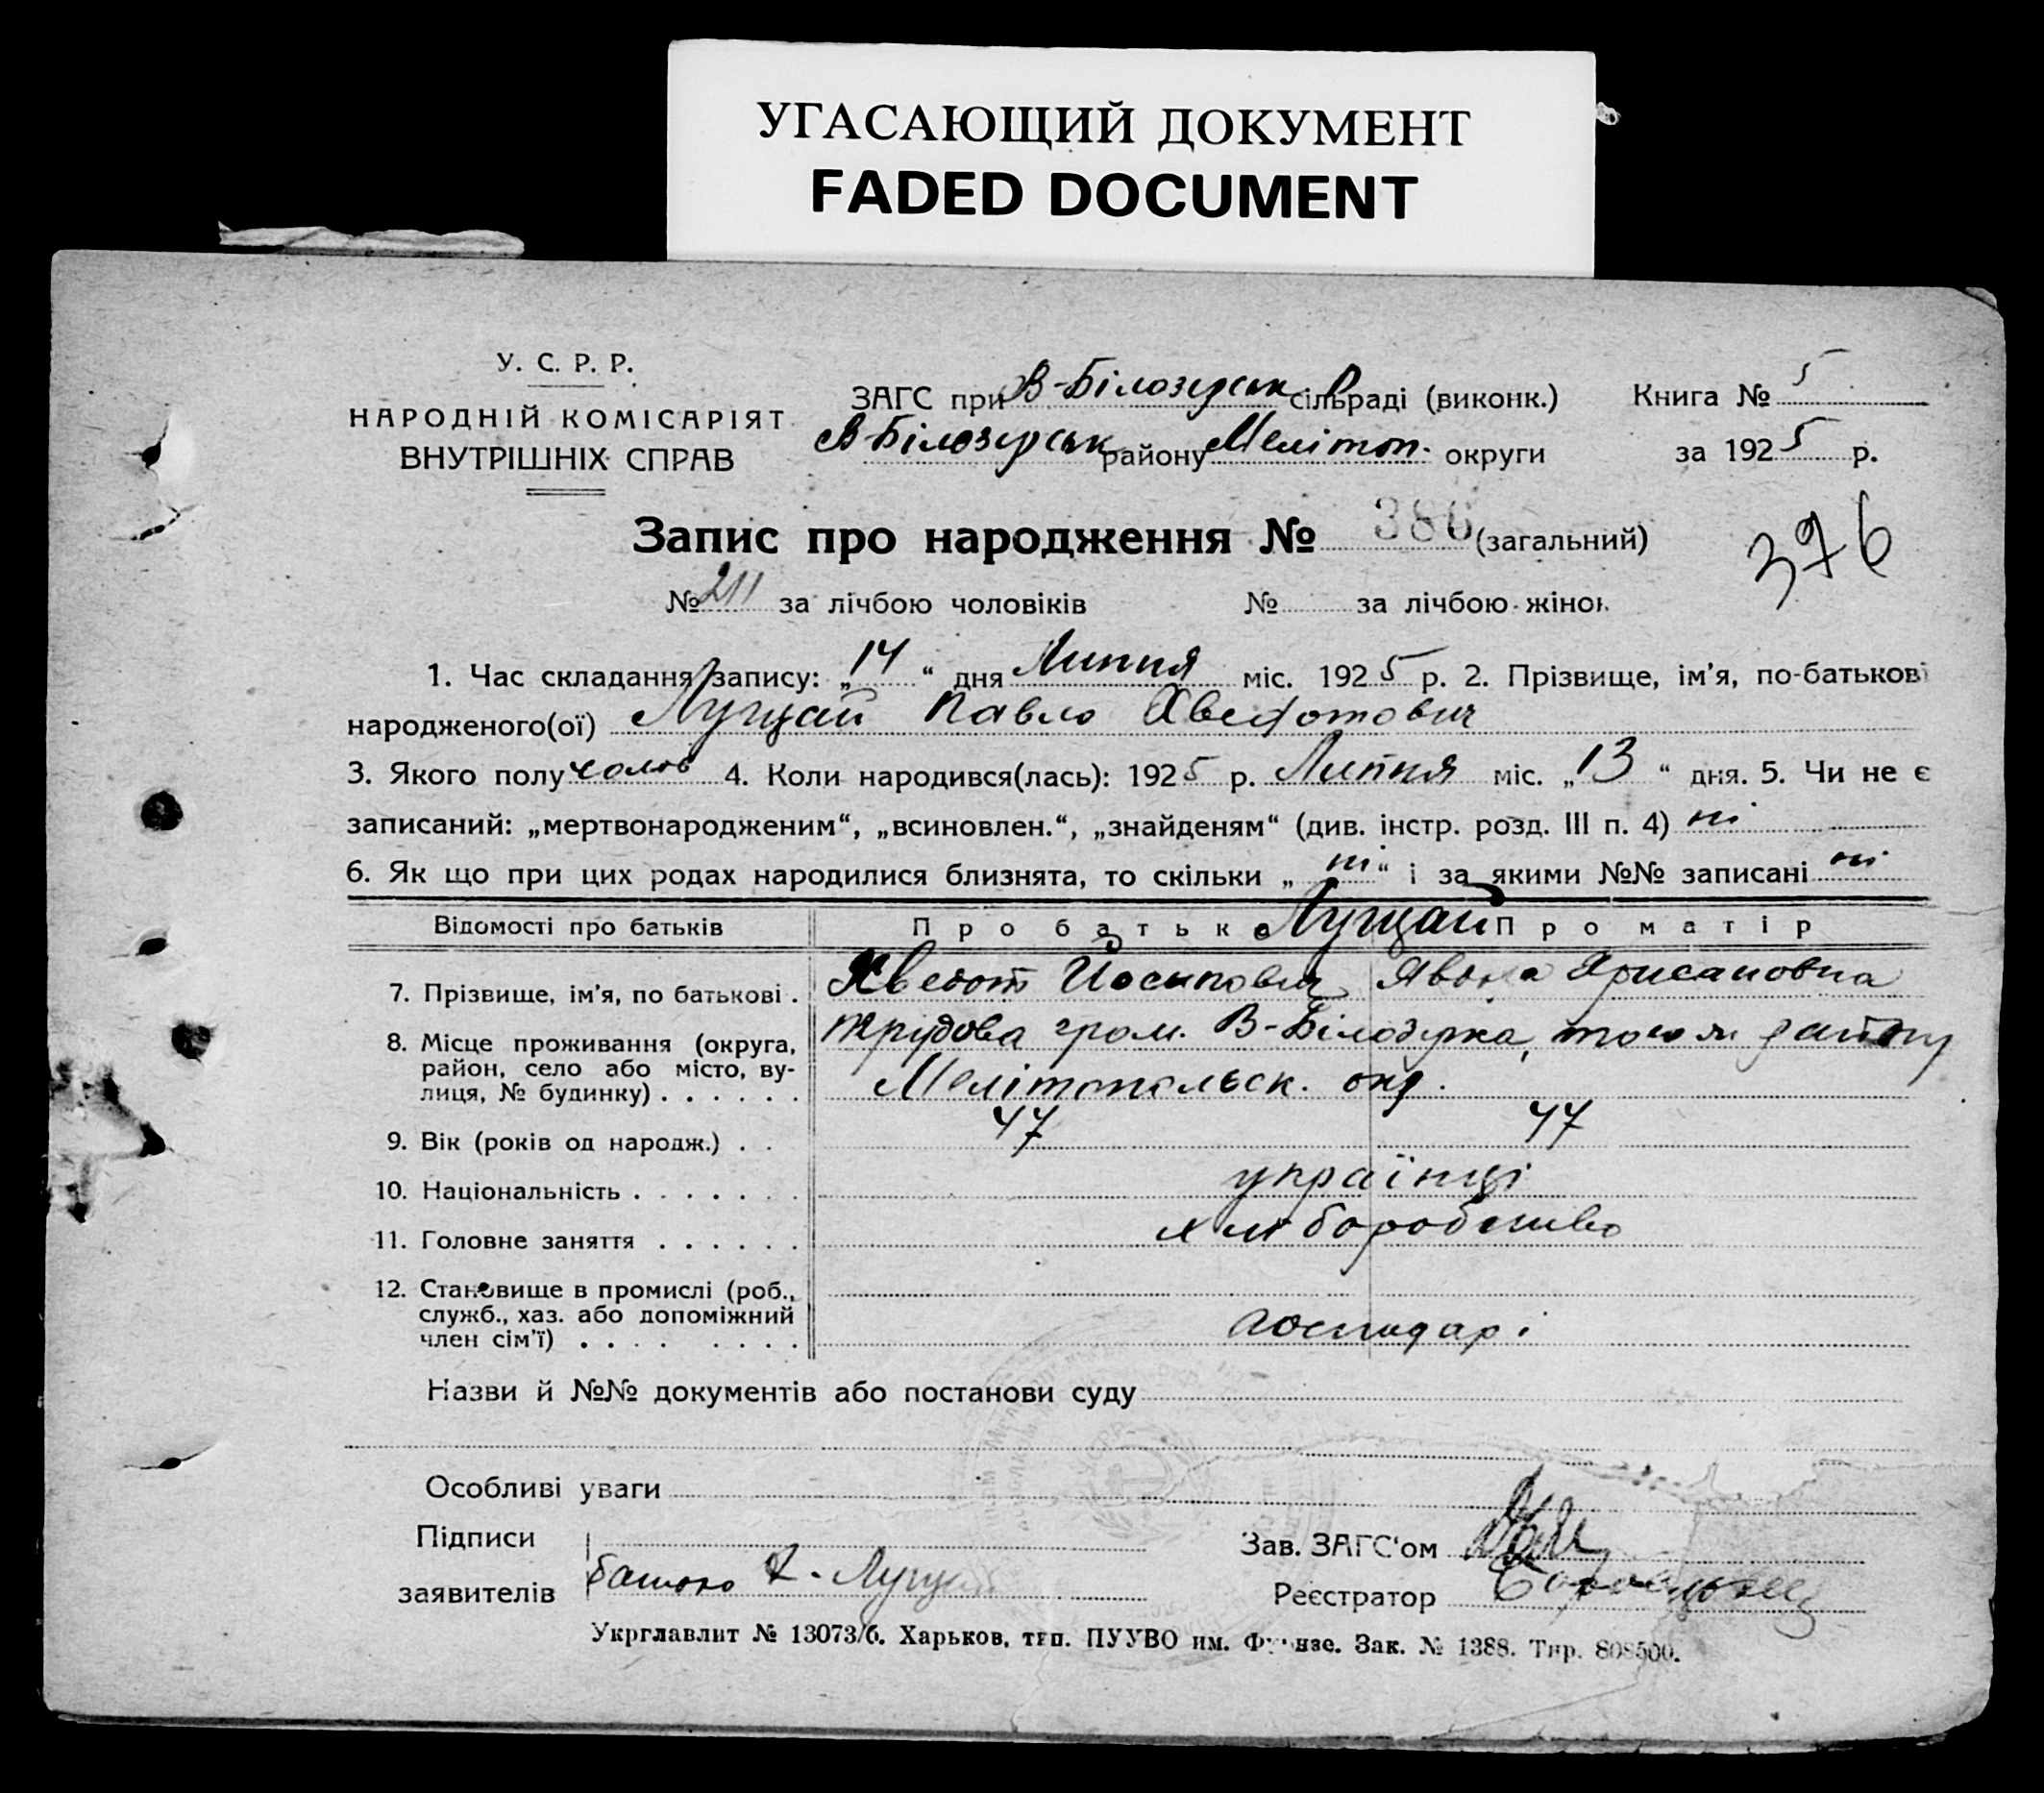 УГАСАЮЩИЙ ДОКУМЕНТ
FADED DOCUMENT
У. С. Р. Р.
НАРОДНІЙ КОМІСАРІЯТ
ВНУТРІШНІХ СПРАВ
ЗАГС при В-Білозерськ сільраді (виконк.)
В-Білозерськ району Мелітоп. округи
Книга № 5
за 1925 р.
Запис про народження № 386 (загальний)
376
№ 211 за лічбою чоловіків № за лічбою жінок
1. Час складання запису: „14“ дня Липня міс. 1925 р. 2. Прізвище, ім'я, по-батькові
народженого(ої) Лущай Павло Хведотович
3. Якого полу чолов 4. Коли народився(лась): 1925 р. Липня міс. „13“ дня. 5. Чи не є
записаний: „мертвонародженим“, „всиновлен.“, „знайденям“ (див. інстр. розд. III п. 4) ні
6. Як що при цих родах народилися близнята, то скільки „ні“ і за якими №№ записані ні
Відомості про батьків Про батька Лущай Про матір
7. Прізвище, ім'я, по батькові . Хведот Йосипович Явдоха Хрисановна
8. Місце проживання (округа, район, село або місто, вулиця, № будинку) . . . . . . Трудова гром. В-Білозерка, того ж району
Мелітопольск. окр.
9. Вік (років од народж.) . . 47 47
10. Національність . . . . . . . українці
11. Головне заняття . . . . . . хліборобство
12. Становище в промислі (роб.,
служб., хаз. або допоміжний
член сім'ї) . . . . . . . . господарі
Назви й №№ документів або постанови суду
Особливі уваги
Підписи
заявителів батько Х. Лущай
Зав. ЗАГС'ом
Реєстратор
Укрглавлит № 13073/б. Харьков, тип. ПУУВО им. Фрунзе. Зак. № 1388. Тир. 808500.